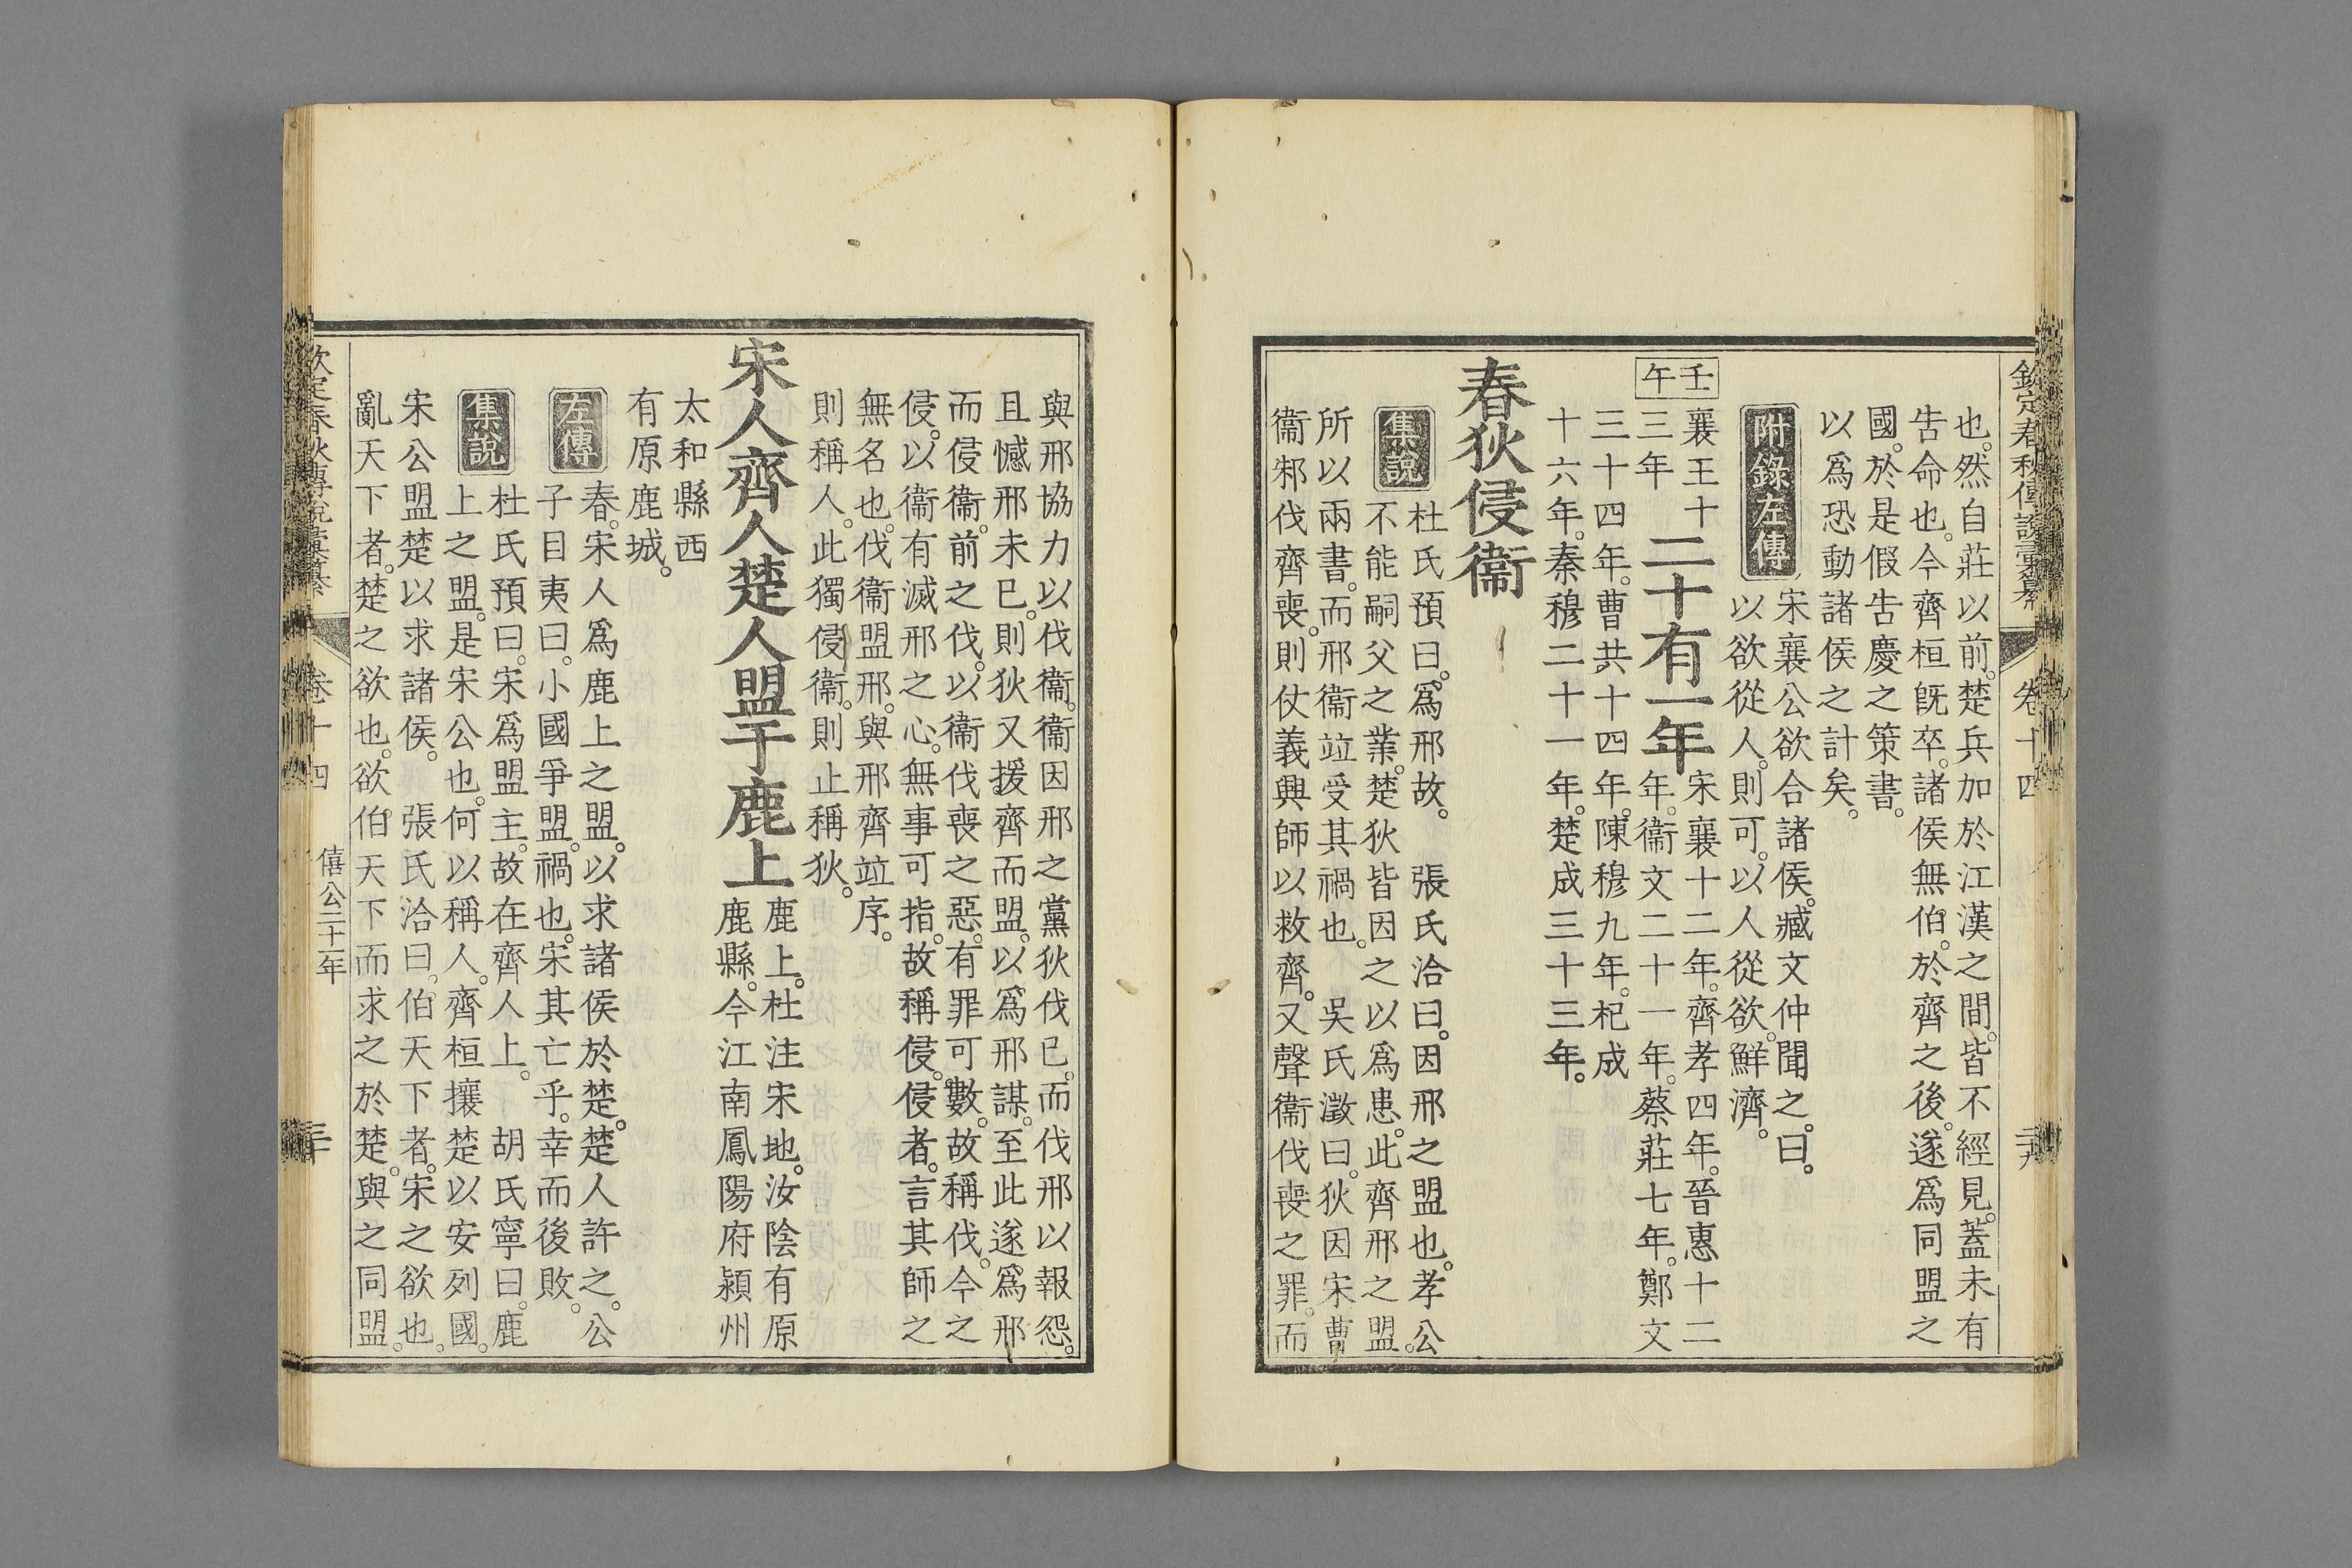 欽定春秋傳說彙纂 卷十四 二十九
也。然自莊以前。楚兵加於江漢之間。皆不經見。蓋未有
告命也。今齊桓旣卒。諸侯無伯。於齊之後。遂爲同盟之
國。於是假告慶之策書。
以爲恐動諸侯之計矣。
附錄左傳
宋襄公欲合諸侯。臧文仲聞之。曰。
以欲從人。則可。以人從欲。鮮濟。
壬午
襄王十三年
二十有一年
宋襄十二年。齊孝四年。晉惠十二
年。衞文二十一年。蔡莊七年。鄭文
三十四年。曹共十四年。陳穆九年。杞成
十六年。秦穆二十一年。楚成三十三年。
春狄侵衞
集說
杜氏預曰。爲邢故。 張氏洽曰。因邢之盟也。孝公
不能嗣父之業。楚狄皆因之以爲患。此齊邢之盟。
所以兩書。而邢衞竝受其禍也。 吳氏澂曰。狄因宋曹
衞邾伐齊喪。則仗義興師以救齊。又聲衞伐喪之罪。而
與邢協力以伐衞。衞因邢之黨狄伐已。而伐邢以報怨。
且憾邢未已。則狄又援齊而盟。以爲邢謀。至此遂爲邢
而侵衞。前之伐。以衞伐喪之惡。有罪可數。故稱伐。今之
侵。以衞有滅邢之心。無事可指。故稱侵。侵者。言其師之
無名也。伐衞盟邢。與邢齊竝序。
則稱人。此獨侵衞。則止稱狄。
宋人齊人楚人盟于鹿上
鹿上。杜注宋地。汝陰有原
鹿縣。今江南鳳陽府潁州
太和縣西
有原鹿城。
左傳
春。宋人爲鹿上之盟。以求諸侯於楚。楚人許之。公
子目夷曰。小國爭盟。禍也。宋其亡乎。幸而後敗。
集說
杜氏預曰。宋爲盟主。故在齊人上。 胡氏寧曰。鹿
上之盟。是宋公也。何以稱人。齊桓攘楚以安列國。
宋公盟楚以求諸侯。 張氏洽曰。伯天下者。宋之欲也。
亂天下者。楚之欲也。欲伯天下而求之於楚。與之同盟。
欽定春秋傳說彙纂 卷十四 僖公二十一年 三十